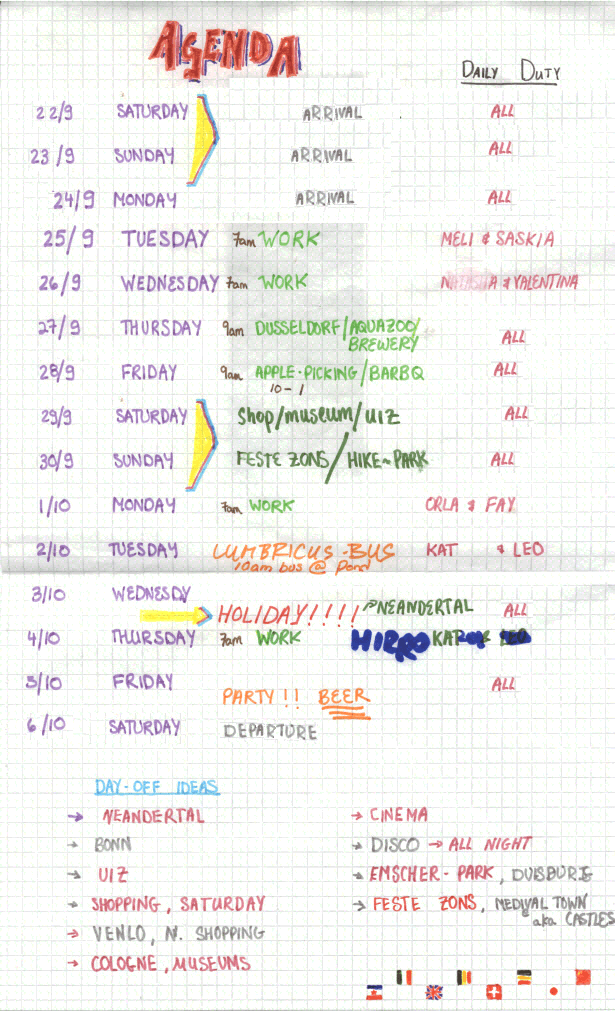 AGENDA
DAILY DUTY
22/9 SATURDAY ARRIVAL ALL
23/9 SUNDAY ARRIVAL ALL
24/9 MONDAY ARRIVAL ALL
25/9 TUESDAY 7am WORK MELI & SASKIA
26/9 WEDNESDAY 7am WORK & VALENTINA
27/9 THURSDAY 9am DUSSELDORF/AQUAZOO/
BREWERY ALL
28/9 FRIDAY 9am APPLE-PICKING/BARBQ ALL
10-1
29/9 SATURDAY Shop/museum/UIZ ALL
30/9 SUNDAY FESTE ZONS/HIKE~PARK ALL
1/10 MONDAY 7am WORK ORLA & FAY
2/10 TUESDAY LUMBRICUS-BUS KAT & LEO
10am bus @ Pond
3/10 WEDNESDAY
HOLIDAY!!!! NEANDERTAL ALL
4/10 THURSDAY 7am WORK HIERO
5/10 FRIDAY ALL
PARTY!! BEER
6/10 SATURDAY DEPARTURE
DAY-OFF IDEAS
→ NEANDERTAL
→ BONN
→ UIZ
→ SHOPPING, SATURDAY
→ VENLO, N. SHOPPING
→ COLOGNE, MUSEUMS
→ CINEMA
→ DISCO → ALL NIGHT
→ EMSCHER-PARK, DUISBURG
→ FESTE ZONS, MEDIVAL TOWN
aka CASTLES